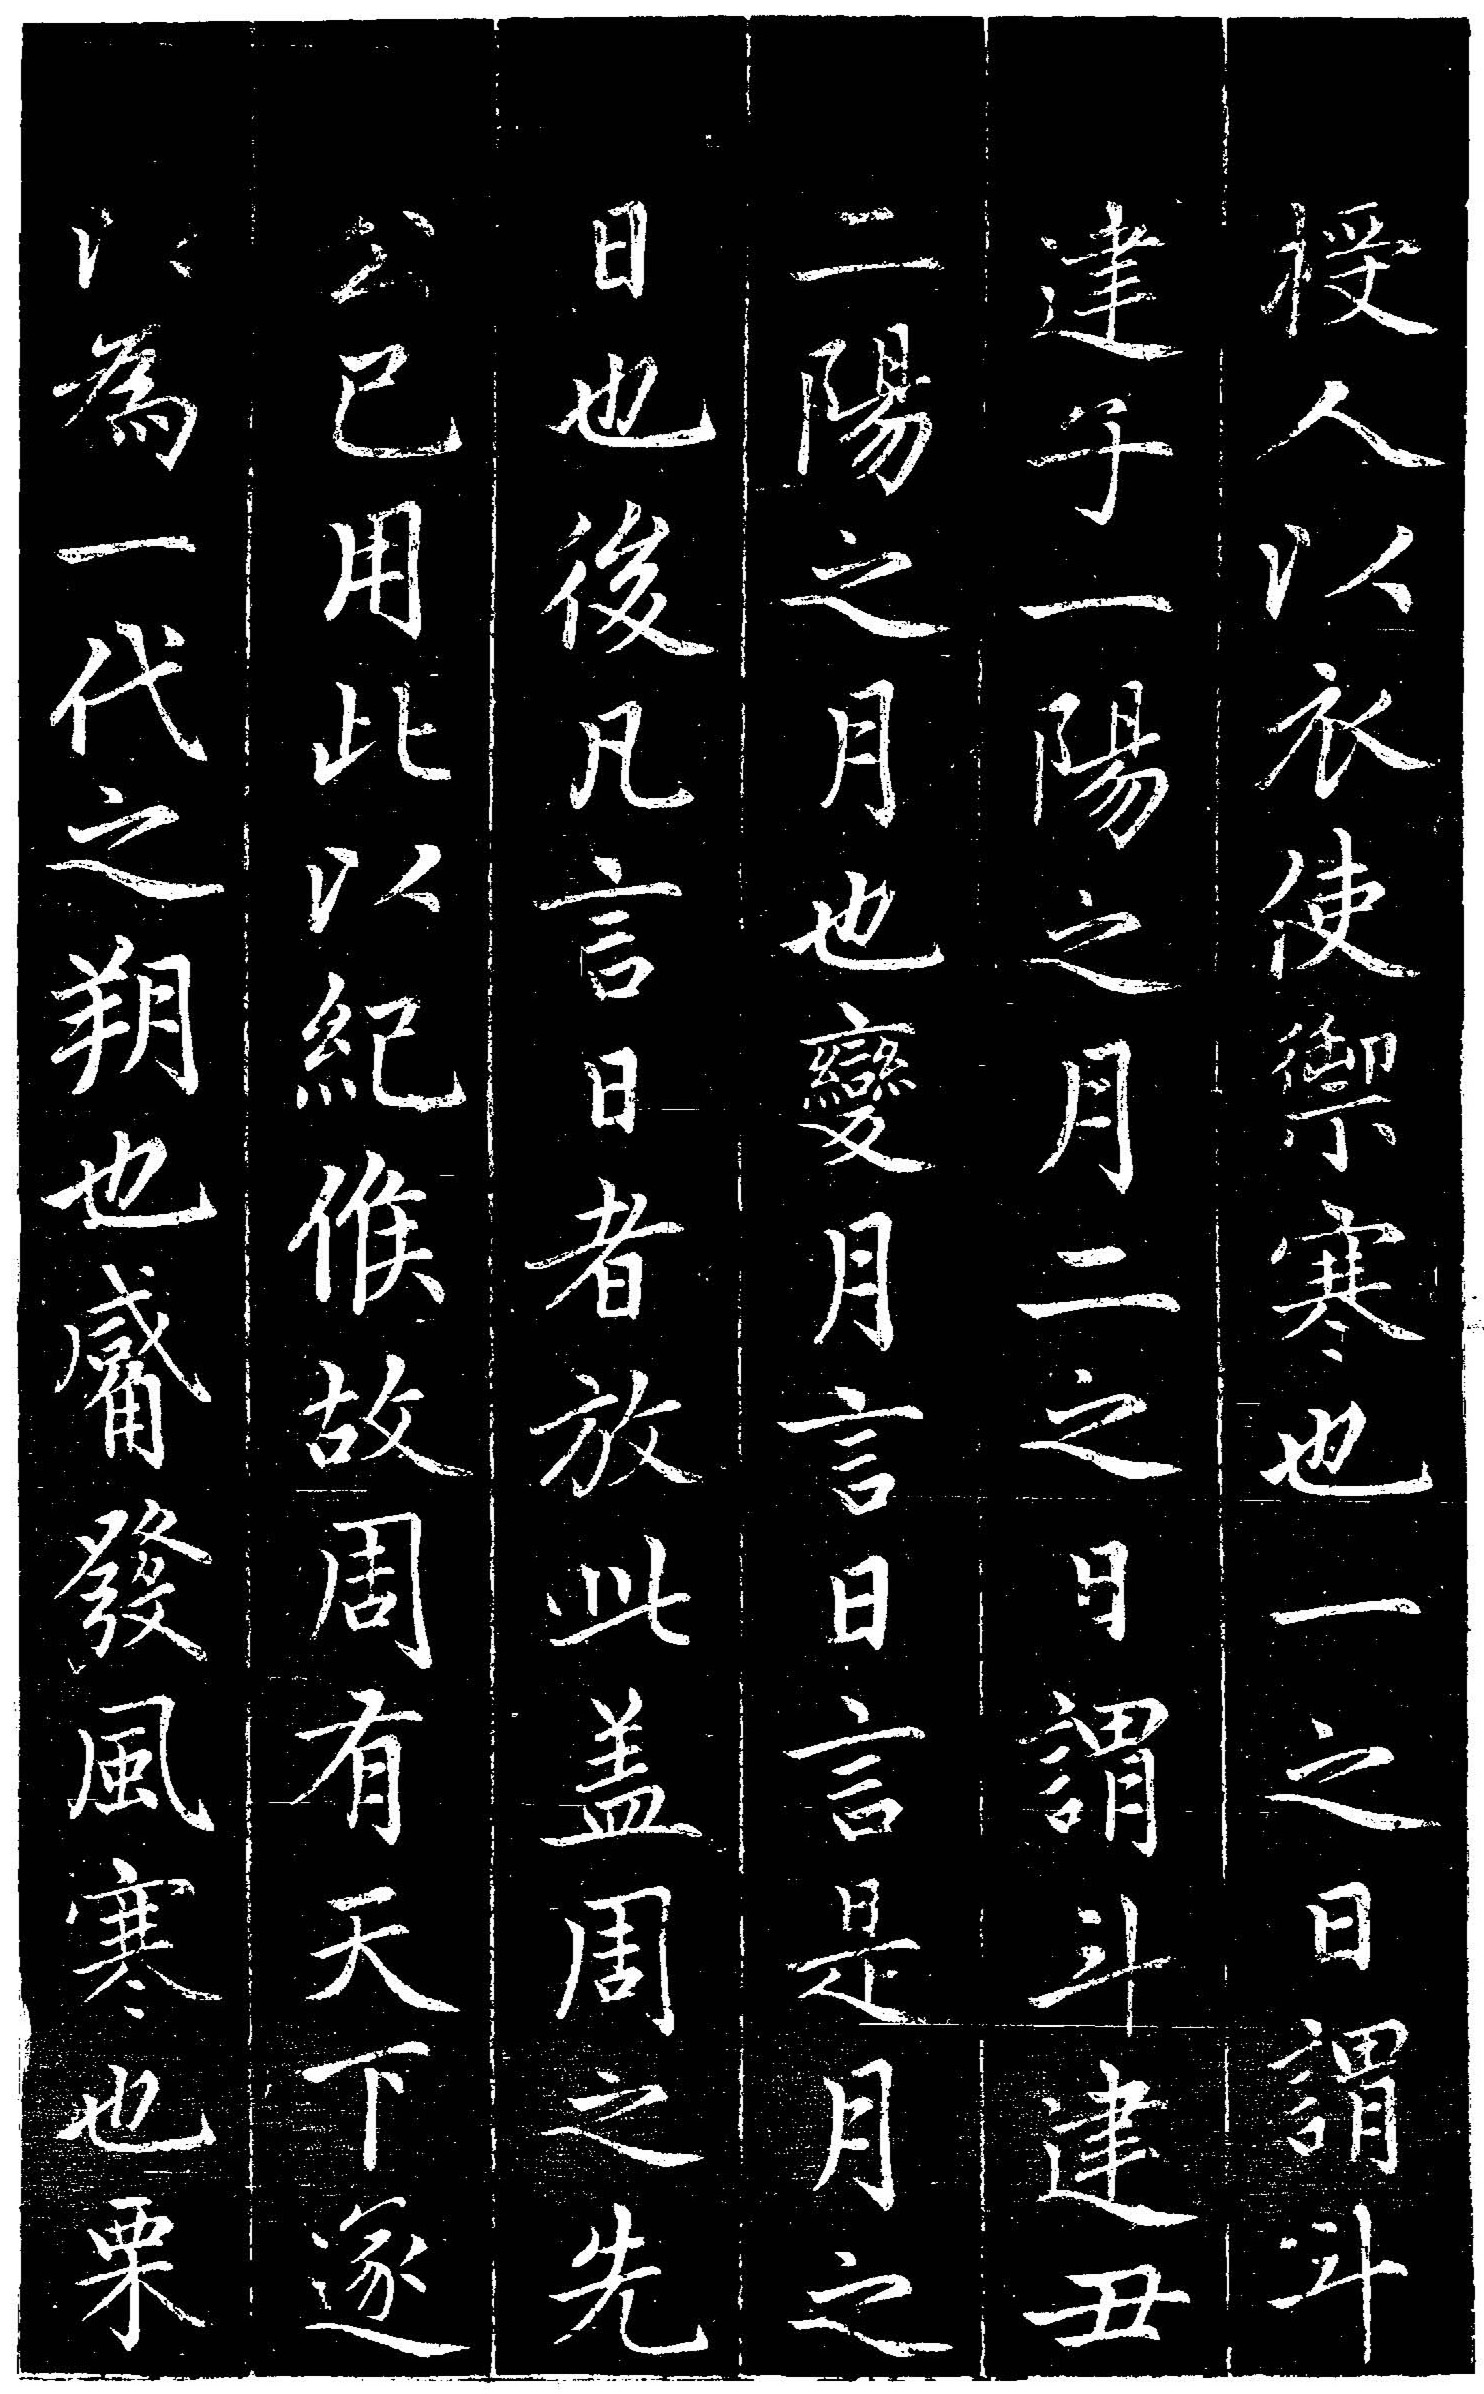 授人以衣使禦寒也一之日謂斗
建子一陽之月二之日謂斗建丑
二陽之月也變月言日言是月之
日也後凡言日者放此盖周之先
公已用此以紀候故周有天下遂
以為一代之朔也觱發風寒也栗